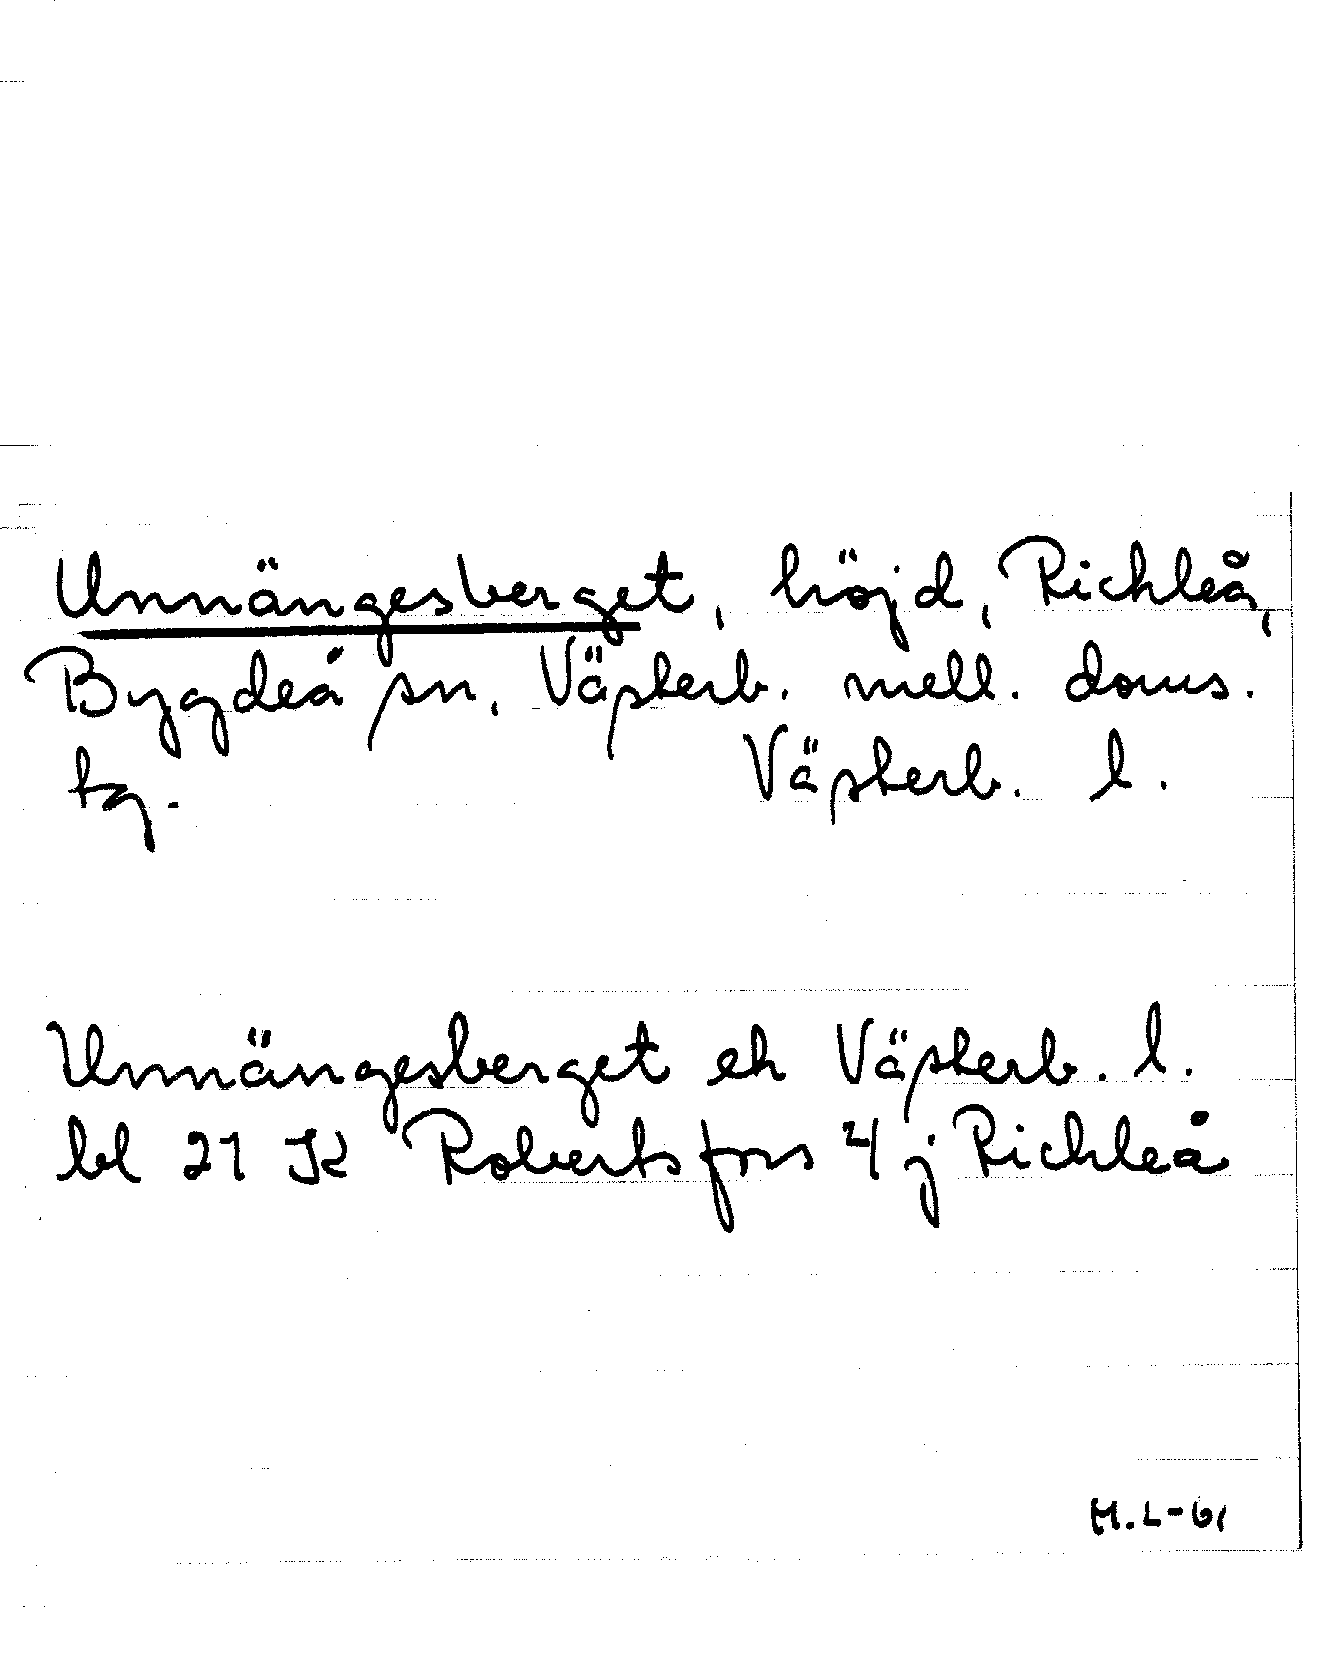 Unnängesberget, höjd, Richleå,
Bygdeå sn, Västerb. mell. doms.
tg. Västerb. l.
Unnängesberget ek Västerb. l.
bl 21 K Robertsfors 4 j Richleå
H.L-61